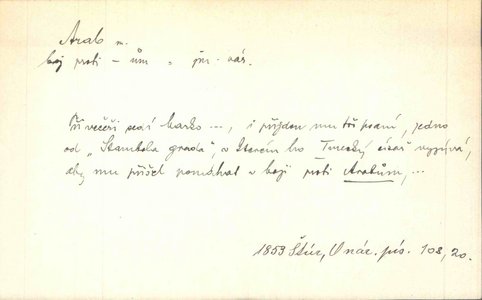 Arab m.
boj proti – ům v jur. nár.
Při večeři sedí Marko ..., i přijdou mu tři psaní, jedno
od „Stambola grada", v kterém ho Turecký císař vyzývá,
aby mu přišel pomáhat v boji proti Arabům, ...
1853 Štúr, O nár. pís. 108, 20.